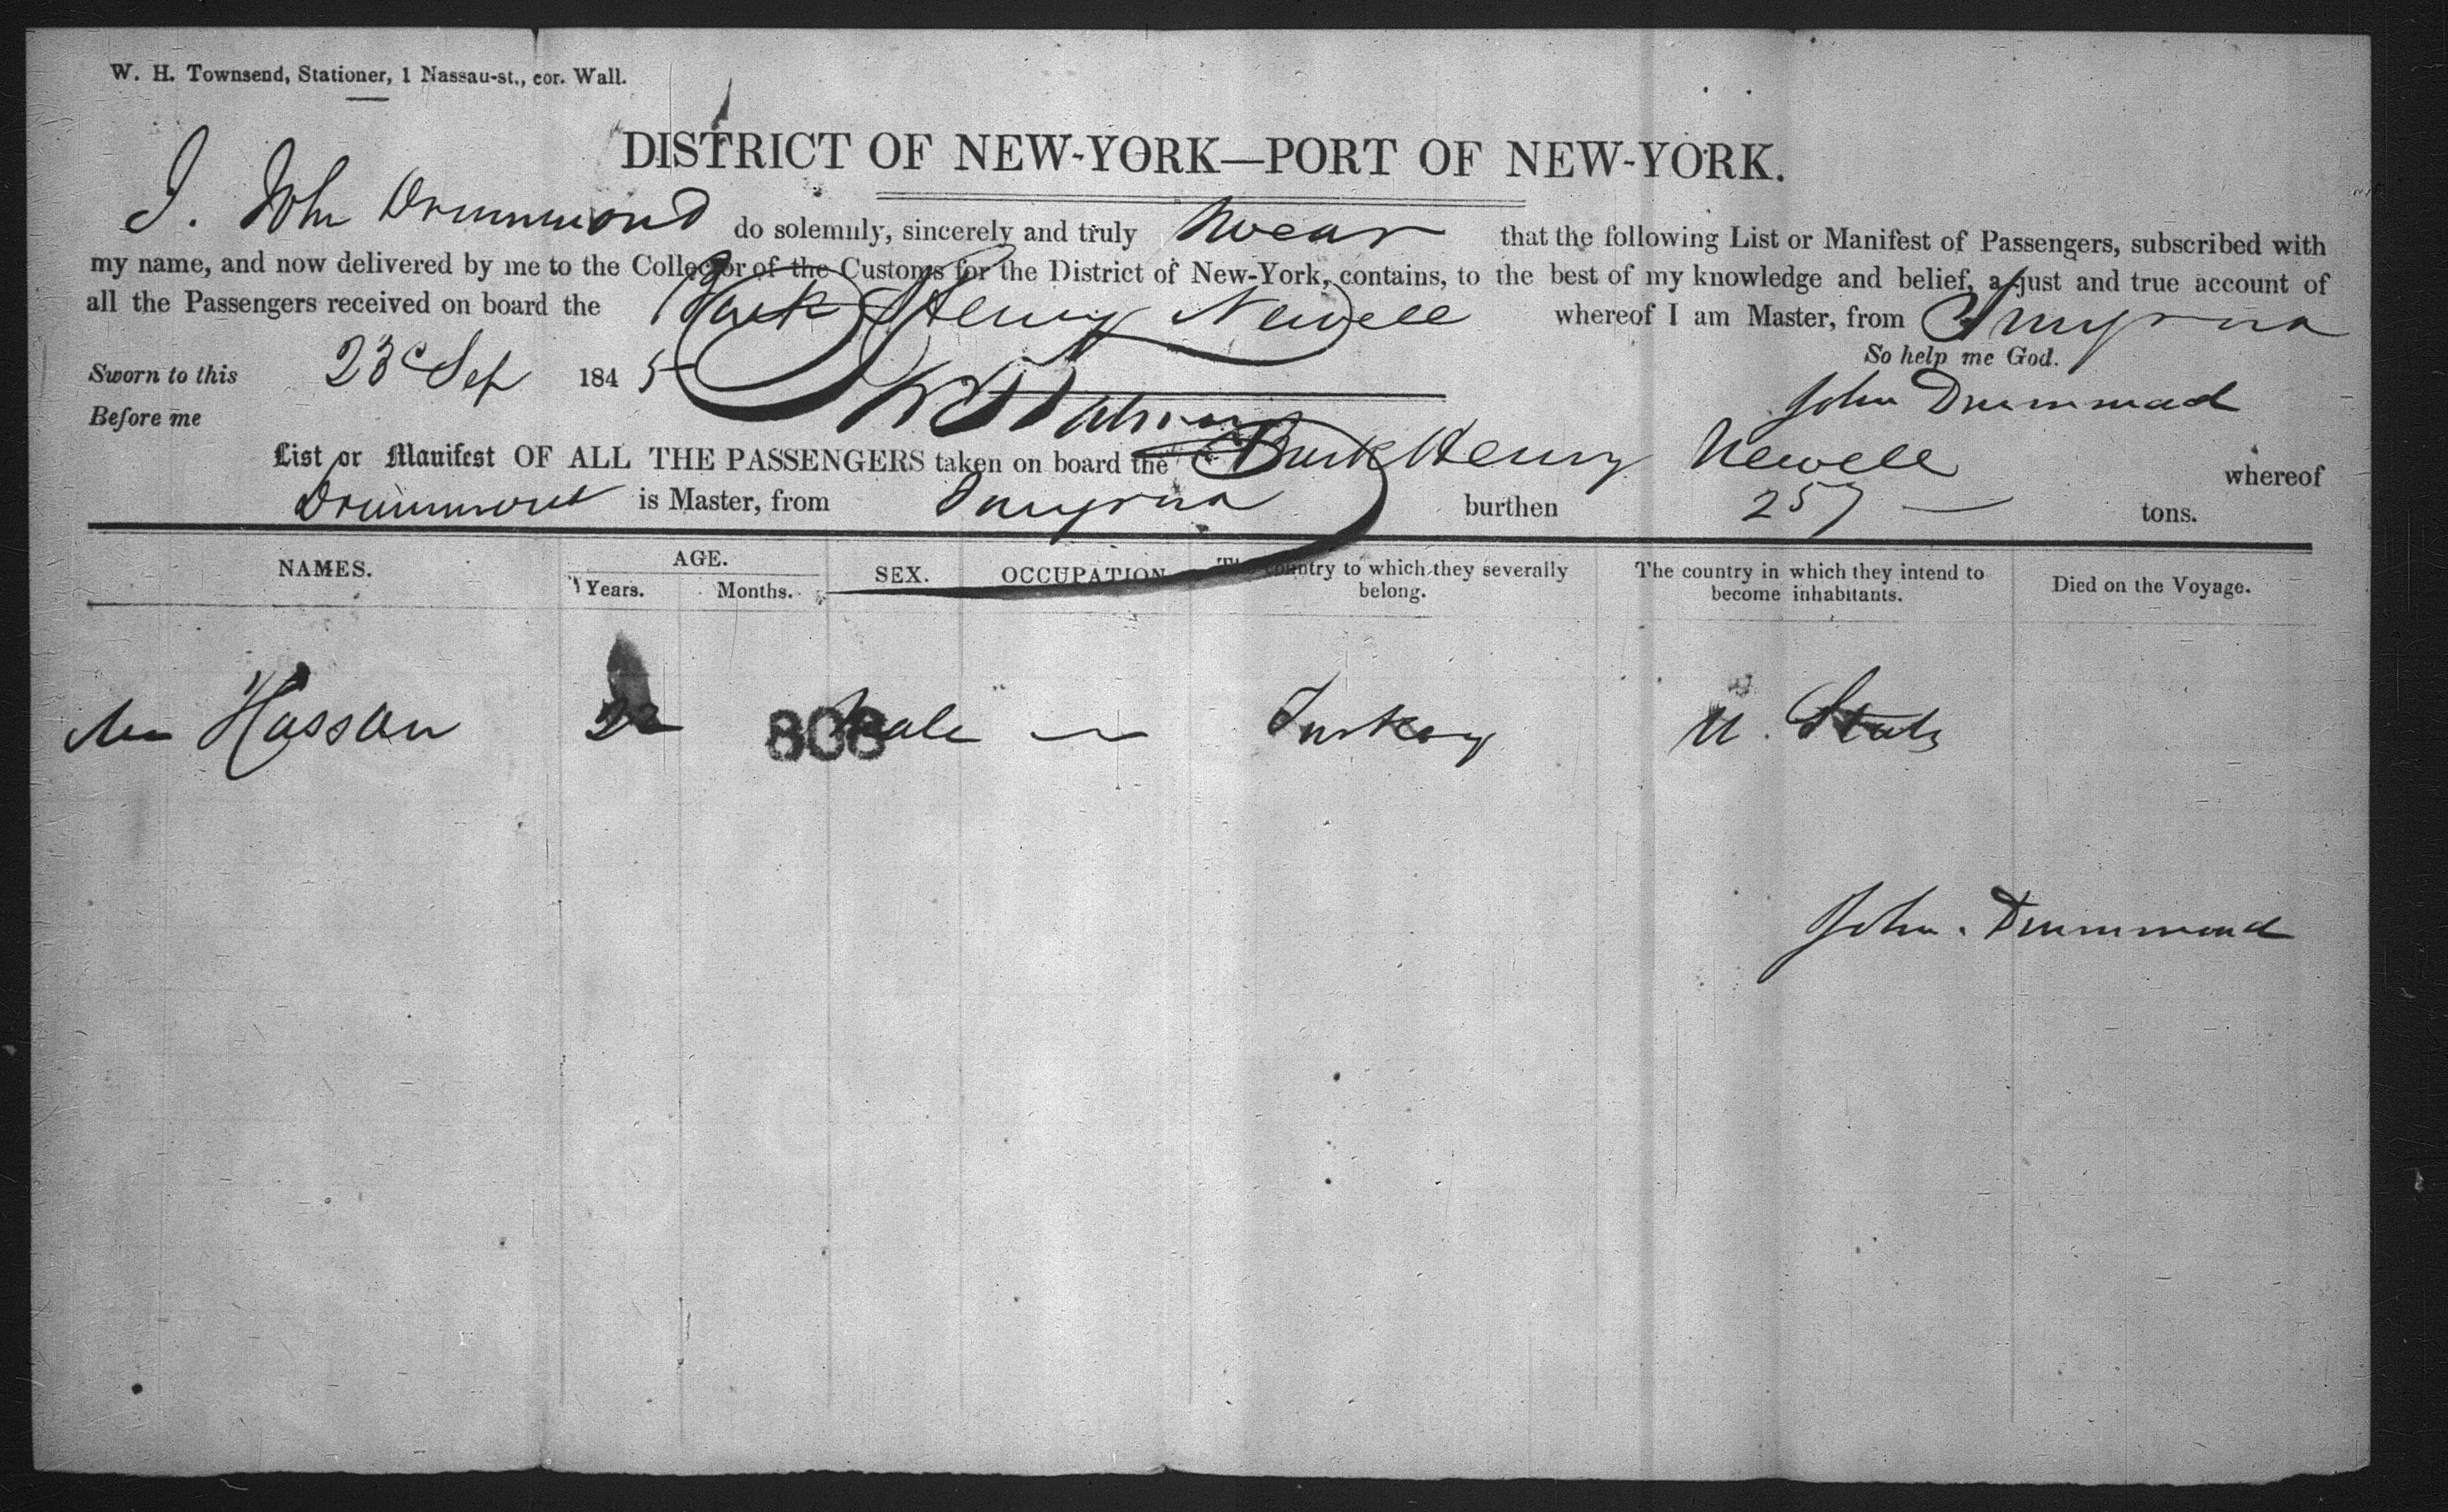 W. H. Townsend, Stationer, 1 Nassau-st., cor. Wall.
DISTRICT OF NEW-YORK—PORT OF NEW-YORK.
I. John Drummond do solemnly, sincerely and truly swear that the following List or Manifest of Passengers, subscribed with
my name, and now delivered by me to the Collector of the Customs for the District of New-York, contains, to the best of my knowledge and belief, a just and true account of
all the Passengers received on board the Bark Henry Newell whereof I am Master, from Smyrna
So help me God.
Sworn to this 23d Sep 1845
John Drummond
Before me
List or Manifest OF ALL THE PASSENGERS taken on board the Bark Henry Newell whereof
Drummond is Master, from Smyrna burthen 257 tons.
NAMES. AGE. SEX. OCCUPATION The country to which they severally belong. The country in which they intend to become inhabitants. Died on the Voyage.
Years. Months.
Hassan 22 808 Male — Turkey U. States
John. Drummond